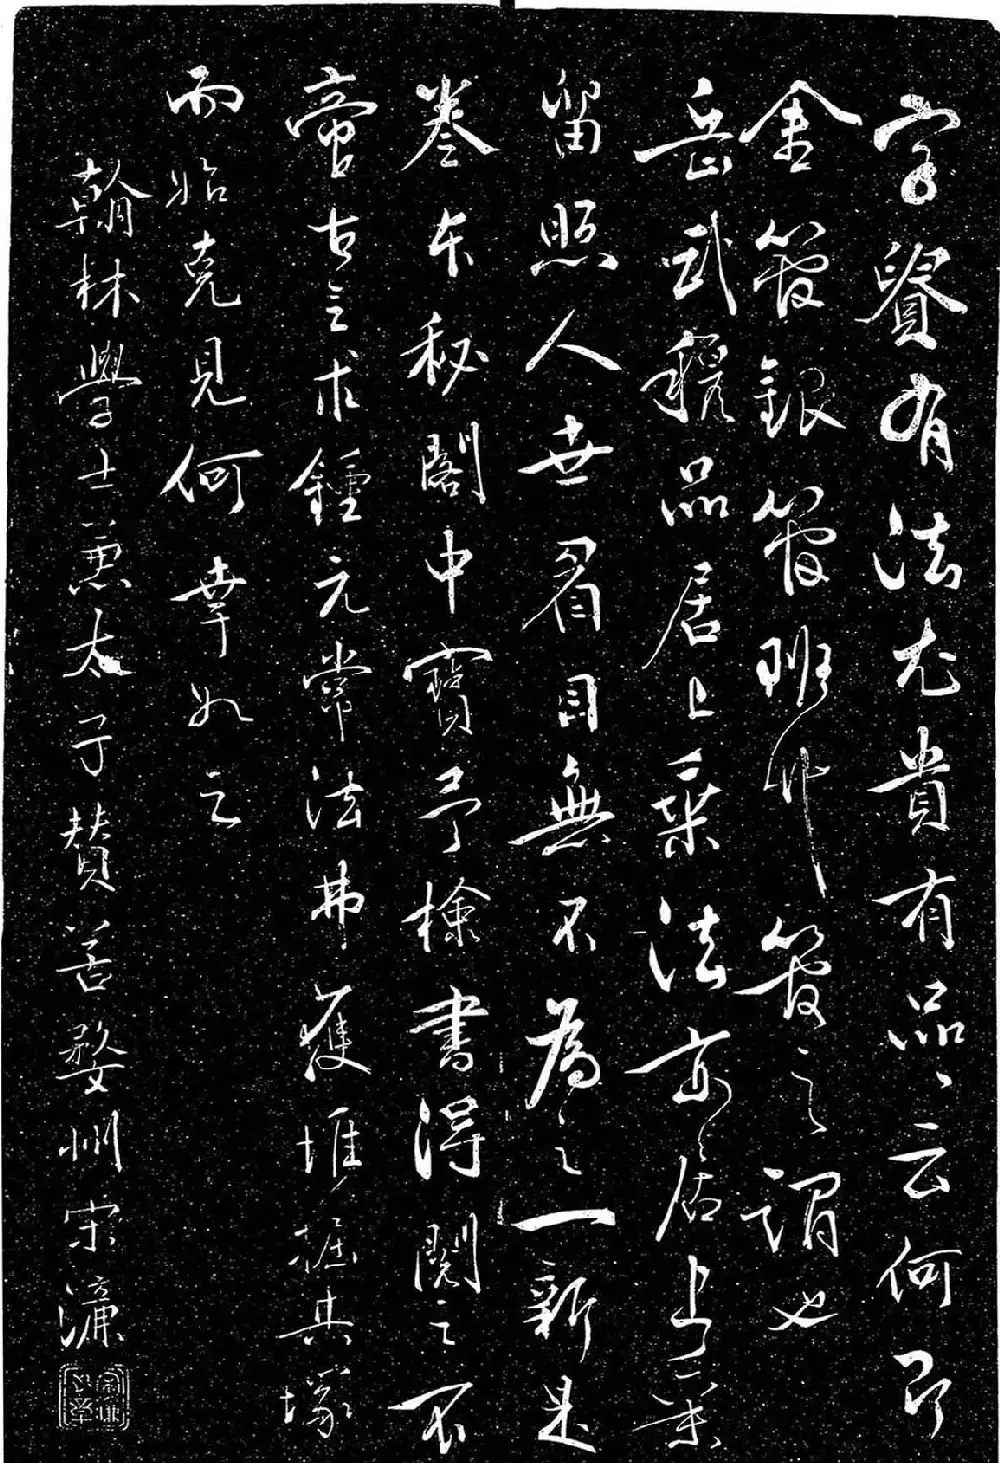 字賢有法尤貴有品品云何即
金管銀管斑竹管之謂也
岳武穆品居上乘法亦居上乘
留照人世眉目無不為之一新是
卷本秘閣中寶予檢書得閱之不
啻古之求鍾元常法弗獲堆掘其塚
而始克見何幸如之
翰林學士兼太子贊善婺州宋濂